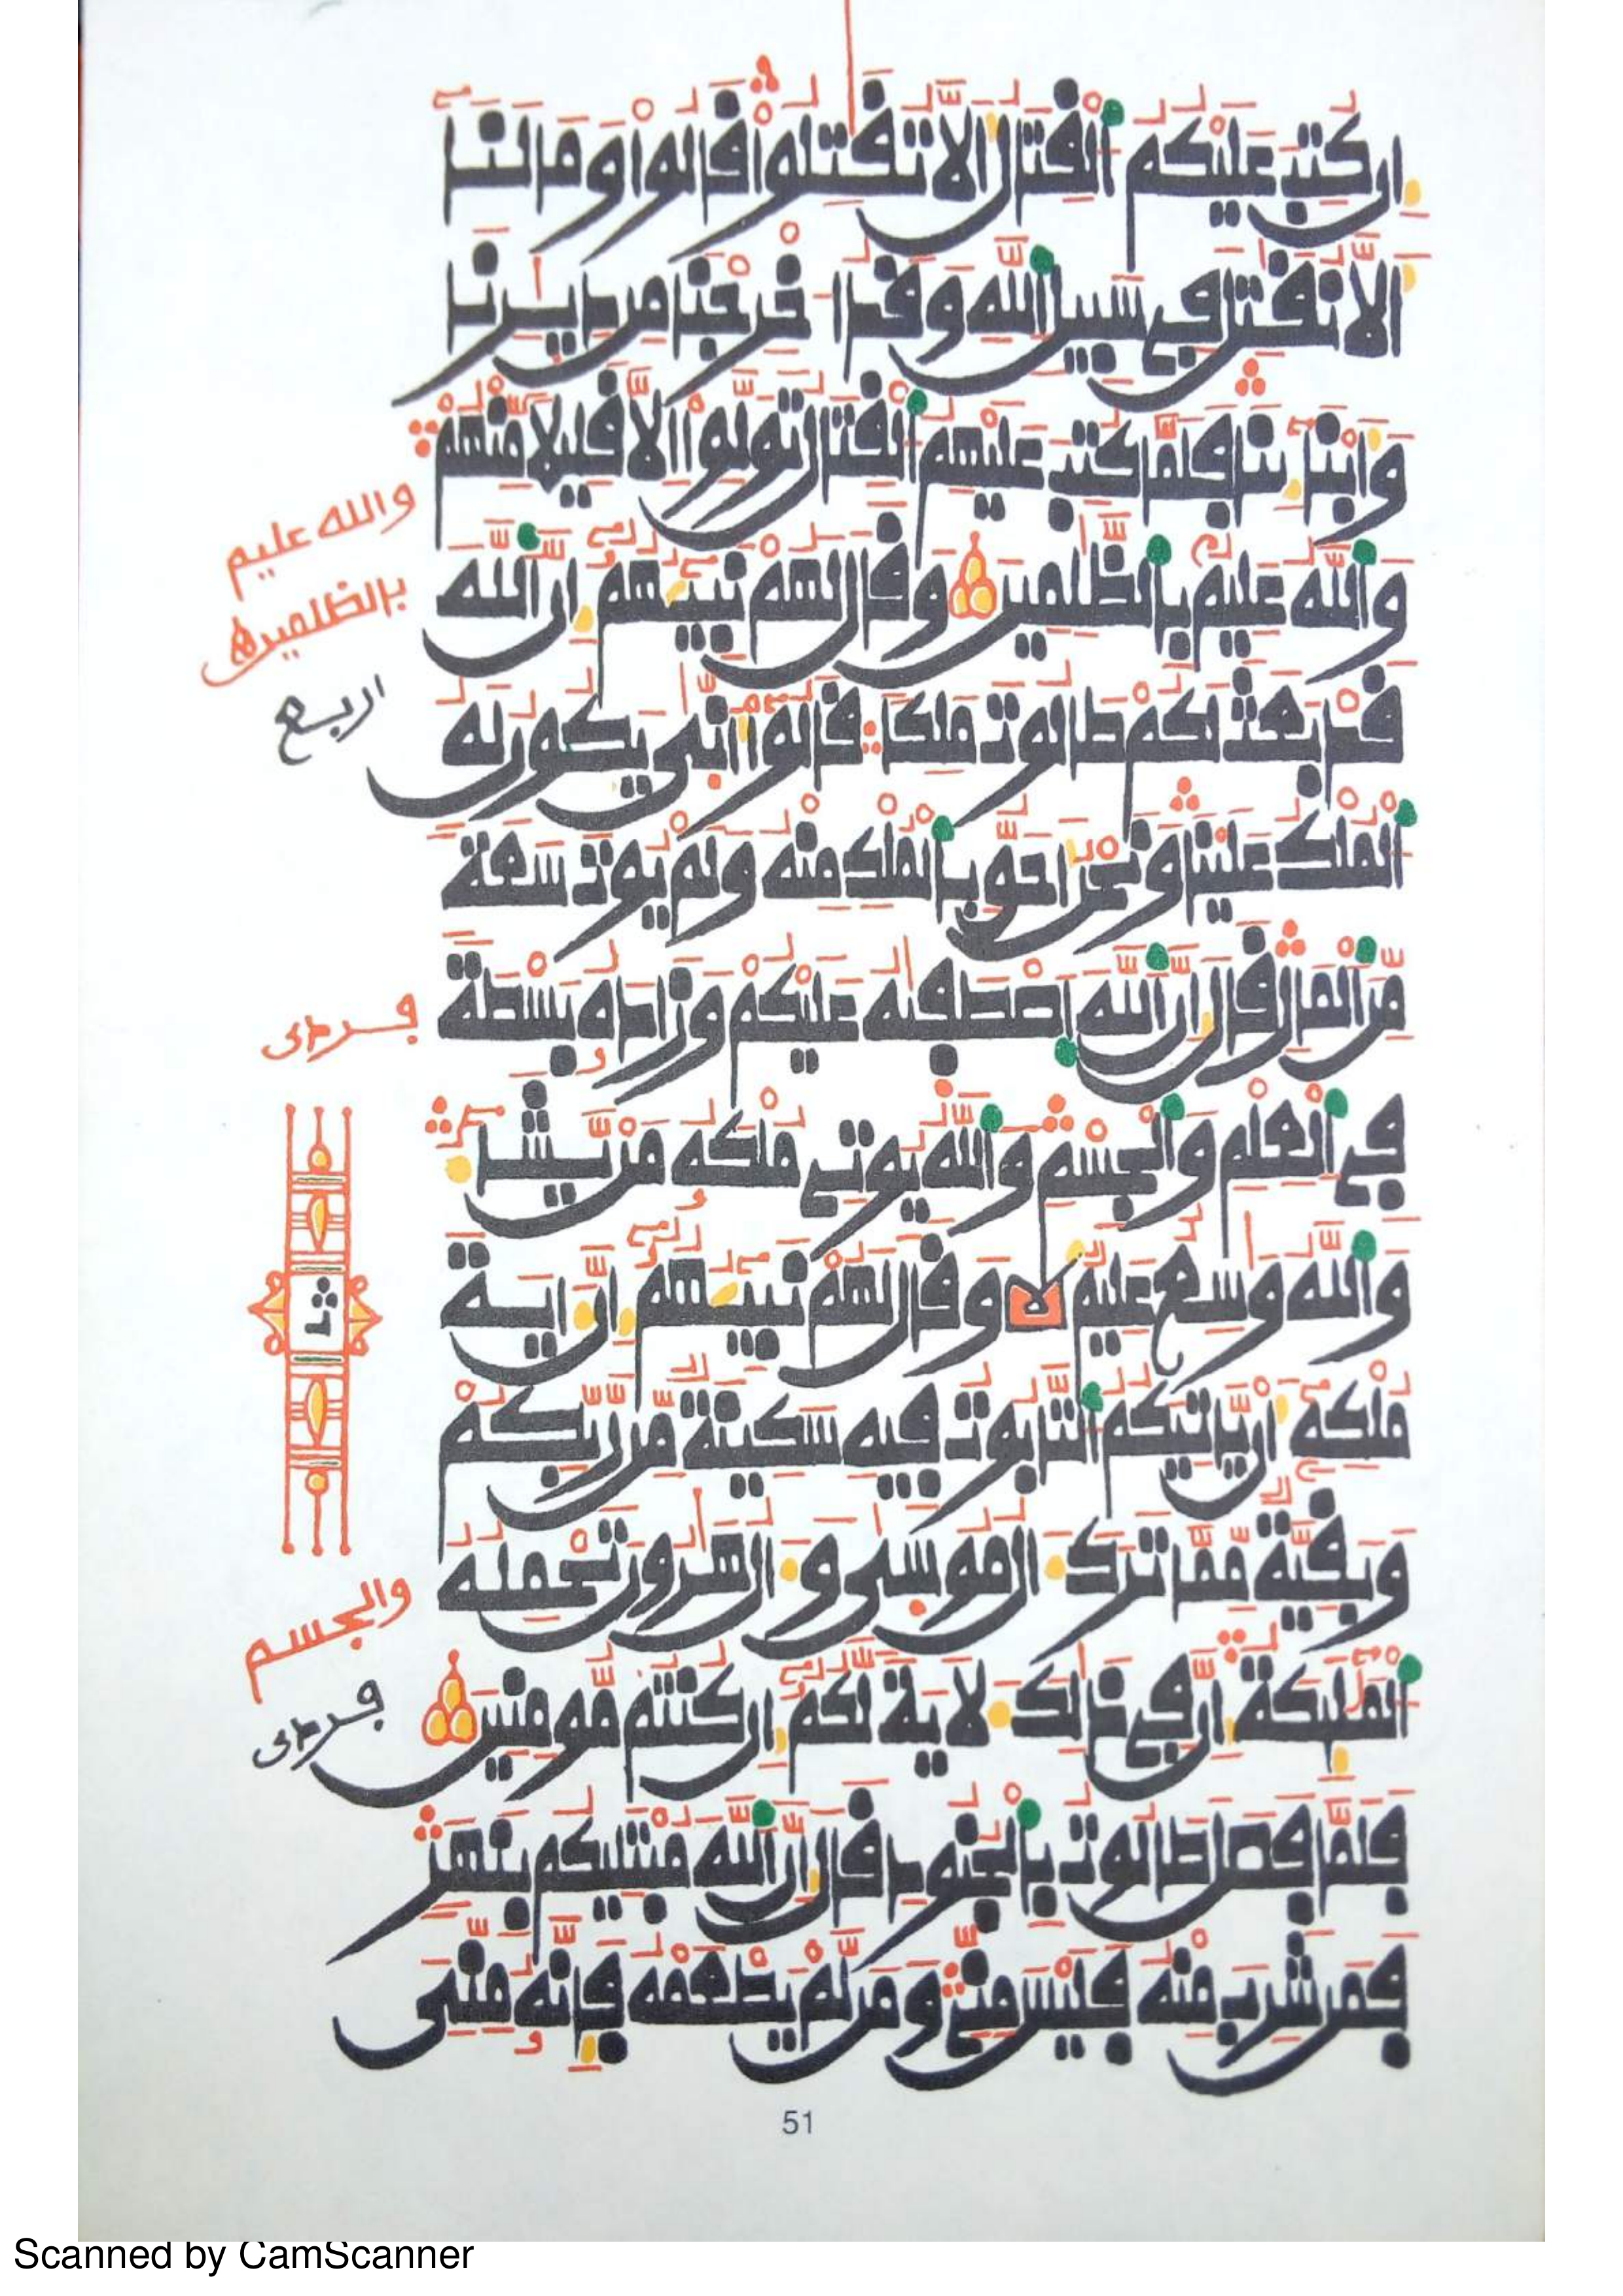 ان كتب عليكم القتال الا تقتلوا قالوا وما لنا
الا نقتل في سبيل الله وقد اخرجنا من ديرنا
وابنائنا فلما كتب عليهم القتال تولوا الا قليلا منهم
والله عليم بالظلمين وقال لهم نبيهم ان الله
قد بعث لكم طالوت ملكا قالوا انى يكون له
الملك علينا ونحن احق بالملك منه ولم يوت سعة
من المال قال ان الله اصطفيه عليكم وزاده بسطة
في العلم والجسم والله يوتي ملكه من يشا
والله وسع عليم وقال لهم نبيهم ان اية
ملكه ان ياتيكم التابوت فيه سكينة من ربكم
وبقية مما ترك ال موسى وال هرون تحمله
الملئكة ان في ذالك لاية لكم ان كنتم مومنين
فلما فصل طالوت بالجنود قال ان الله مبتليكم بنهر
فمن شرب منه فليس مني ومن لم يطعمه فانه مني
والله عليم
بالظلمين
اربع
والجسم
51
Scanned by CamScanner